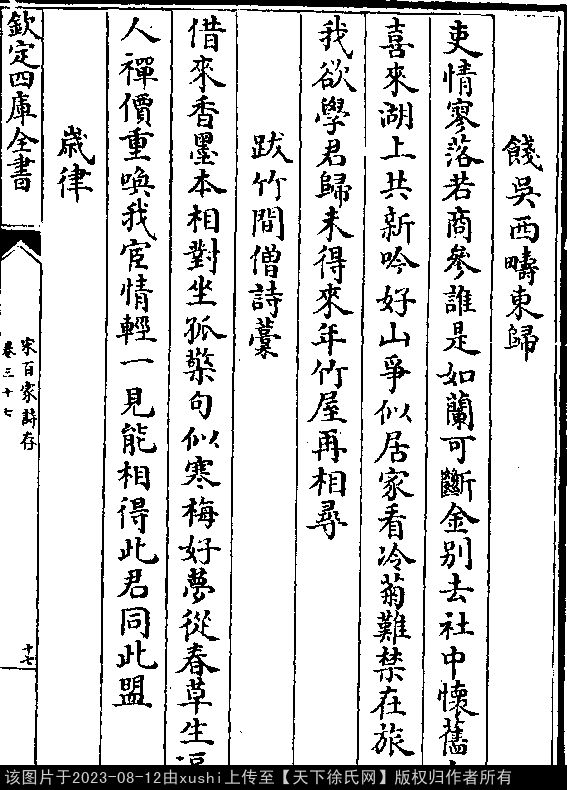 餞吳西疇東歸
吏情寥落若商參誰是如蘭可斷金别去社中懷舊
喜來湖上共新吟好山爭似居家看冷菊難禁在旅
我欲學君歸未得來年竹屋再相尋
跋竹間僧詩藳
借來香墨本相對坐孤檠句似寒梅好夢從春草生
人禪價重喚我宦情輕一見能相得此君同此盟
歳律
欽定四庫全書
宋百家詩存
卷三十七
十七
该图片于2023-08-12由xushi上传至【天下徐氏网】版权归作者所有